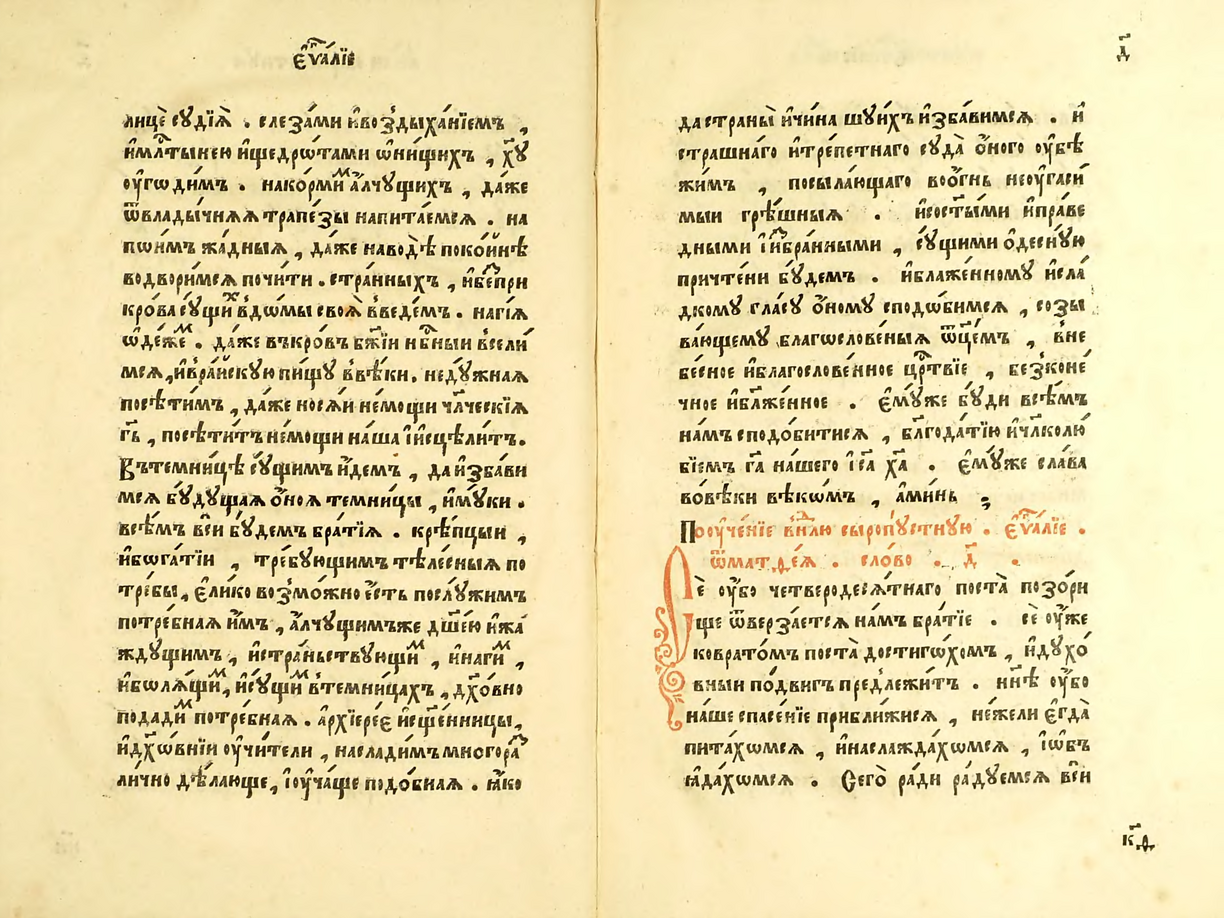 є҆ѵⷢ҇алїе
лицѐ сꙋдїѧ̀ . слеза́ми и҆воз̾дыха́нїемъ ,
и҆млⷭ҇тынею и҆щедрѡ́тами ѡ҆ни́щихъ , хꙋ҃
ᲂу҆го́дим . нако́рмиⷨ а҆́лчꙋщихъ , да́же
ѿвладычнѧѧ трапе́зы напита́емсѧ . на
пои́мъ жа́дныѧ , да́же наводѣ̀ поко́йнѣ
водвори́мсѧ почи́ти . стра́нныхъ , и҆беⷥпри
кро́ва сꙋ́щиⷯ в̾до́мы своѧ̀ в̾веде́мъ . наги́ѧ
ѡ҆де́жеⷨ . да́же въкро́въ бж҃їи нбⷭ҇ныи в̾сели́
мсѧ , и҆в̾ра́йскꙋю пи́щꙋ в̾вѣ́ки . недꙋ́жнаѧ
посѣти́мъ , да́же носѧ́и не́мощи чл҃ческїѧ
гь҃ , посѣти́тъ не́мощи на́ша і҆и҆сцѣли́тъ .
Въ темни́цѣ сꙋ́щимъ и҆́демъ , да и҆зба́ви
мсѧ бꙋ́дꙋщаѧ о҆́ноѧ темни́цы , и҆мꙋ́ки .
всѣ́мъ вси̂ бꙋ́демъ бра́тїѧ . крѣ́пцыи ,
и҆бога́тїи , тре́бꙋющимъ тѣле́сныѧ по
тре́бы , є҆ли́ко воз̾мо́жно є҆́сть послꙋ́жимъ
потре́бнаѧ и҆̀мъ , а҆́лчꙋщимъже дш҃е́ю и҆жа́
ждꙋщимъ , и҆стра́ньствꙋющиⷨ , и҆наги́ⷨ ,
и҆болѧ́щиⷨ , и҆сꙋ́щиⷨ в̾темни́цахъ , дх҃о́вно
подади́ⷨ потре́бнаѧ . а҆рхїере́є и҆сщ҃е́нницы ,
и҆дх҃о́внїи ᲂу҆чи́тели , наслади́мъ многораⷥ
ли́чно дѣ́лающе , і҆ᲂу҆ча́ще подо́бнаѧ . ꙗ҆́ко
д҃
да страны̀ и҆чи́на шꙋ́ихъ и҆зба́вимсѧ . и҆
стра́шнаго и҆тре́петнаго сꙋда̀ о҆́ного ᲂу҆бѣ
жи́мъ , посыла́ющаго во о҆́гнь неᲂу҆гаси́
мыи грѣ́шныѧ . и҆состы҃́ми и҆пра́ве
дными і҆и҆ⷥбра́нными , сꙋ́щими о҆десну́ю
причте́ни бꙋ́демъ . и҆блаже́нномꙋ и҆сла́
дкомꙋ гла́сꙋ о҆́номꙋ сподо́бимсѧ , созы
ва́ющемꙋ благослове́ныѧ ѿц҃е́мъ , в̾не
бе́сное и҆благослове́нное црⷭ҇твїе , без̾коне́
чное и҆бл҃же́нное . є҆мꙋ́же бꙋ́ди всѣ́мъ
на́мъ сподо́битисѧ , бл҃года́тїю и҆чл҃колю́
бїемъ га҃ на́шего і҆са҃ ха҃ . є҆мꙋ́же сла́ва
во́вѣки вѣко́мъ , а҆ми́нь ;
Поᲂуче́нїе в̾нⷣлю сыропꙋ́стнꙋю . є҆ѵⷢ҇алїе .
ѿматѳе́ѧ . сло́во . д҃ .
Се́ ᲂу҆́бо четверодесѧ́тнаго поста̀ позо́ри
ще ѿверза́етсѧ на́мъ бра́тїе . се́ ᲂу҆́же
ковратѡ́мъ поста̀ достиго́хомъ , и҆дꙋхо́
вныи по́двигъ предлежи́тъ . нн҃ѣ ᲂу҆́бо
на́ше спасе́нїе прибли́жисѧ , не́жели є҆гда̀
пита́хомсѧ , и҆наслажда́хомсѧ , і҆ѡ҆бъ
ꙗ҆да́хомсѧ . Сего̀ ра́ди ра́дꙋемсѧ вси̂
кд҃